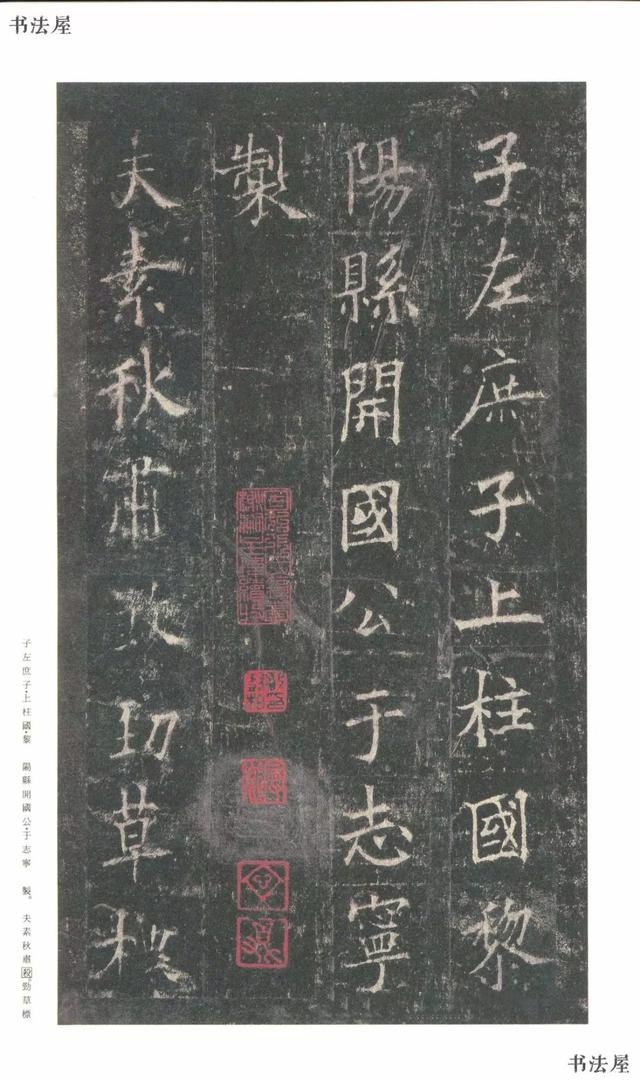 书法屋
子左庶子上柱國黎
陽縣開國公于志寧
製
夫素秋肅殺勁草標
子左庶子·上柱國·黎　陽縣開國公·于志寧　製。夫素秋肅殺勁草標
书法屋